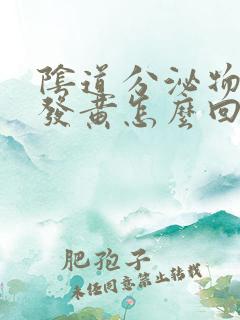 陰道分泌物
發黃怎麼回
肥孢子
未任同意禁止转载